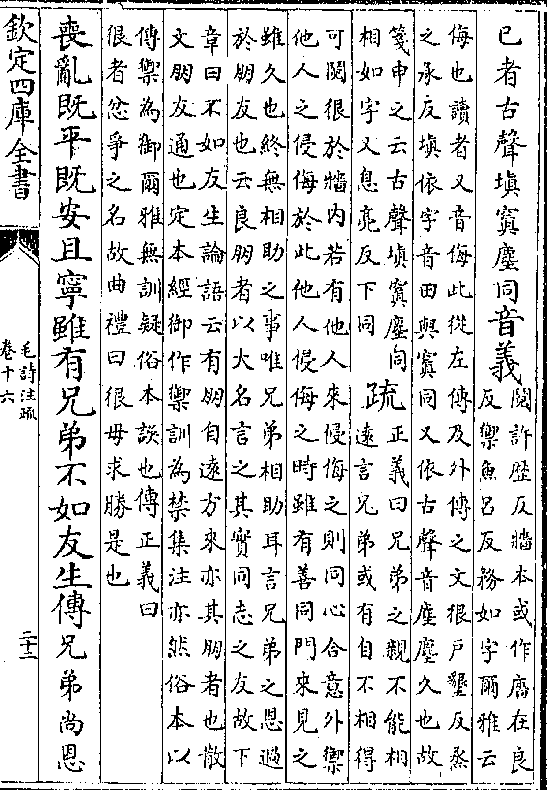 已者古聲塡寘塵同音義
鬩許歴反牆本或作廧在良
反禦魚呂反務如字爾雅云
侮也讀者又音侮此從左傳及外傳之文很戶墾反烝
之承反塡依字音田與寘同又依古聲音塵塵久也故
箋申之云古聲塡寘塵同
相如字又息亮反下同
疏
正義曰兄弟之親不能相
遠言兄弟或有自不相得
可鬩很於牆内若有他人來侵侮之則同心合意外禦
他人之侵侮於此他人侵侮之時雖有善同門來見之
雖久也終無相助之事唯兄弟相助耳言兄弟之恩過
於朋友也云良朋者以大名言之其實同志之友故下
章曰不如友生論語云有朋自遠方來亦其朋者也散
文朋友通也定本經御作禦訓為禁集注亦然俗本以
傳禦為御爾雅無訓疑俗本誤也傳正義曰
很者忿爭之名故曲禮曰很毋求勝是也
喪亂既平既安且寧雖有兄弟不如友生傳兄弟尚恩
欽定四庫全書
毛詩注疏
卷十六
二十三